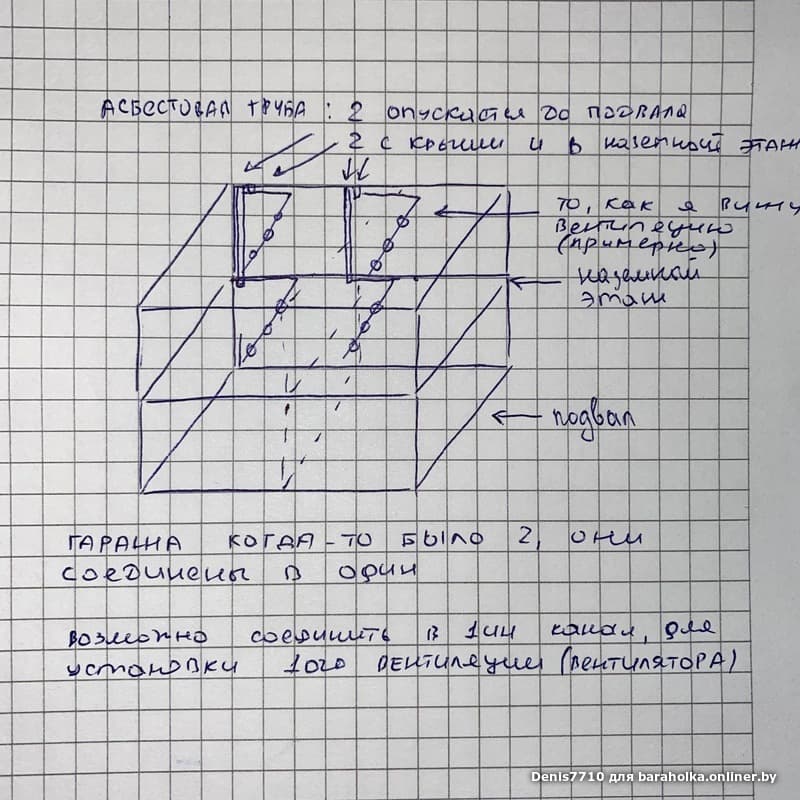 АСБЕСТОВАЯ ТРУБА : 2 опускается до подвала
2 с крыши и в наземный этаж
то, как я вижу
вентиляцию
(примерно)
наземной
этаж
подвал
ГАРАЖА КОГДА-ТО БЫЛО 2, они
соединены в один
возможно соединить в 1ин канал, для
установки 1ого вентиляции (вентилятора)
Denis7710 для baraholka.onliner.by